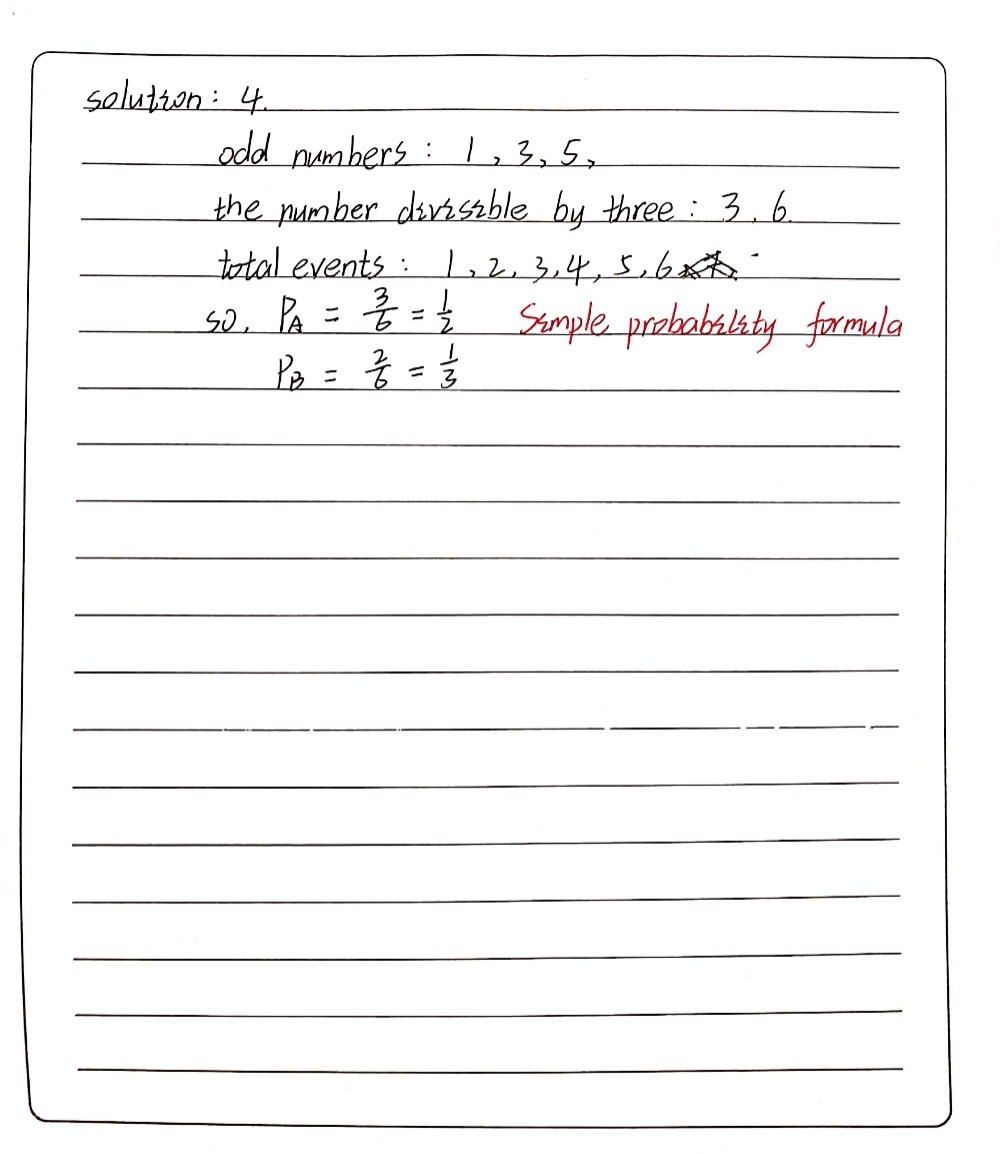 solution: 4.
odd numbers: 1, 3, 5,
the number divisible by three: 3, 6.
total events: 1, 2, 3, 4, 5, 6
so, P_A = 3/6 = 1/2 Simple probability formula
P_B = 2/6 = 1/3